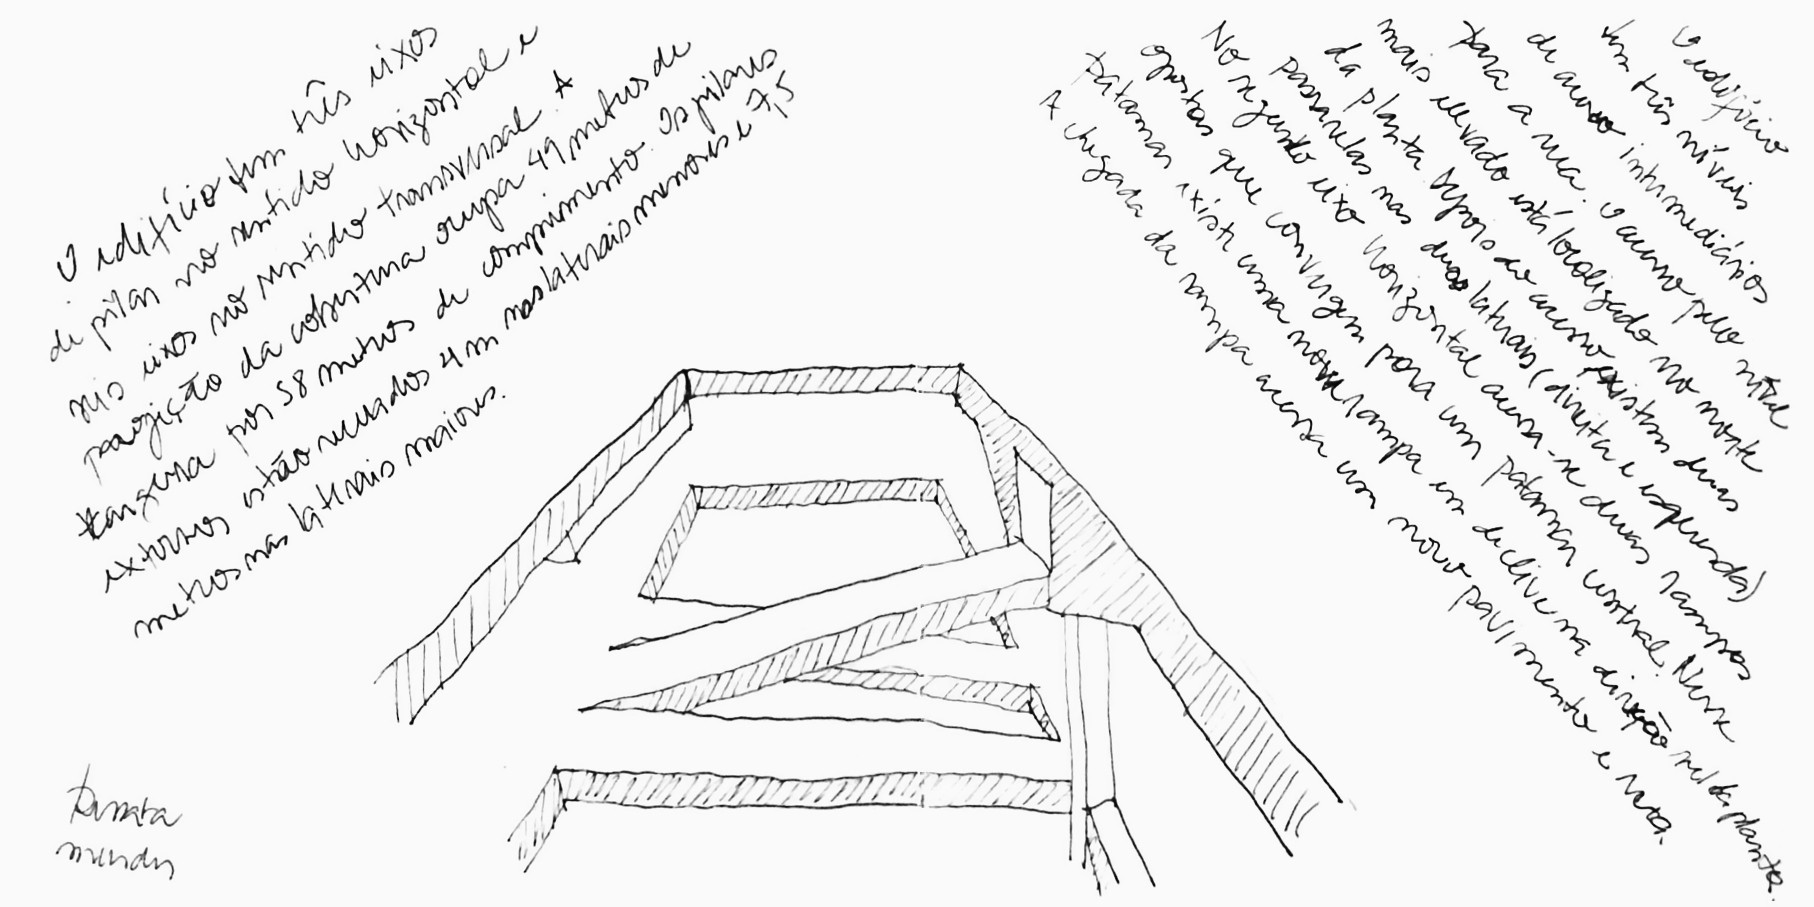 O edifício tem três eixos
de pilar no sentido horizontal e
seis eixos no sentido transversal. A
projeção da cobertura ocupa 49 metros de
largura por 58 metros de comprimento. Os pilares
externos estão recuados 4 m nas laterais menores e 7,5
metros nas laterais maiores.
O edifício
tem três níveis
de acesso intermediários
para a rua. O acesso pelo nível
mais elevado está localizado no norte
da planta. Depois do acesso, existem duas
passarelas nas duas laterais (direita e esquerda)
No segundo eixo horizontal acessa-se duas rampas
opostas que convergem para um patamar central. Nesse
patamar existe uma nova rampa em declive na direção sul da planta.
A chegada da rampa acessa um novo pavimento e
Renata
Mendes